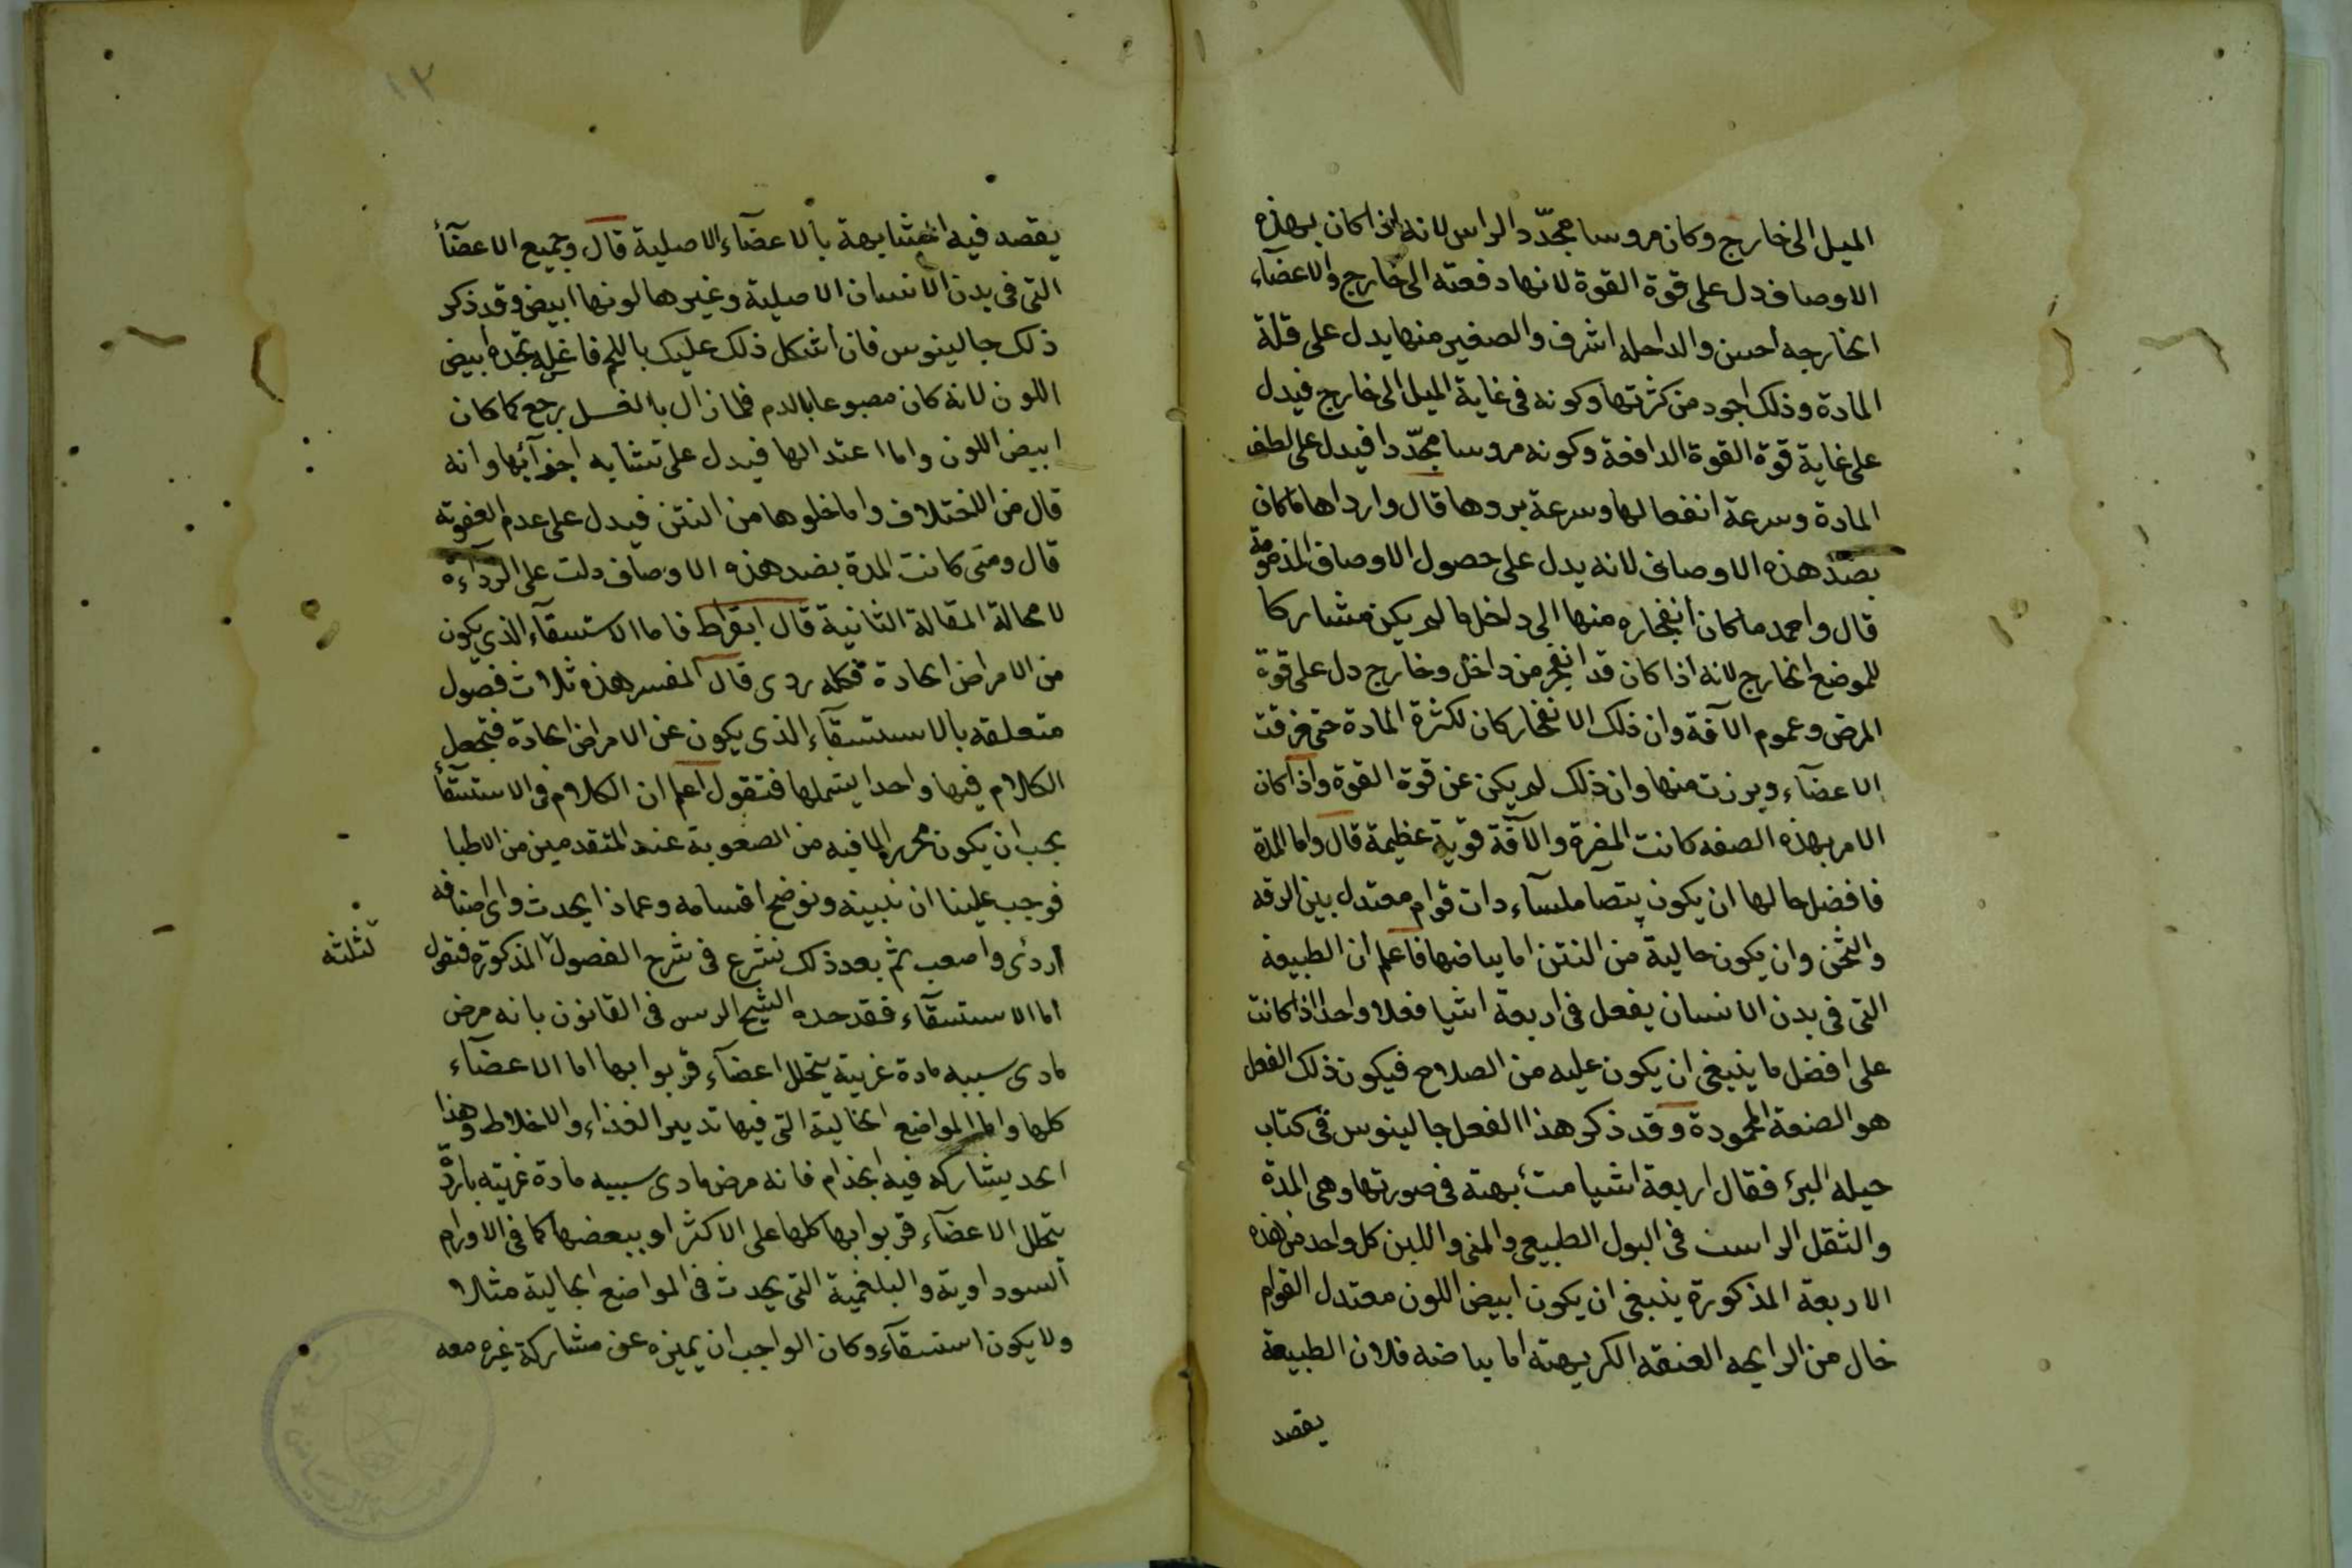 الميل الى خارج وكان مروسا محدّد الراس لانه اذا كان بهذه
الاوصاف دل على قوة القوة لانها دفعته الى خارج والاعضآء
الخارجه احسن والداخله اشرف والصغير منها يدل على قلة
المادة وذلك اجود من كثرتها وكونه فى غاية الميل الى خارج فيدل
على غاية قوة القوة الدافعة وكونه مروسا محدّدا فيدل على لطف
المادة وسرعة انفعالها وسرعة بروها قال وارداها ما كان
بضدّ هذه الاوصاف لانه يدل على حصول الاوصاف المذمومة
قال واحمد ما كان انفجاره منها الى داخل ما لم يكن مشاركا
للموضع الخارج لانه اذا كان قد انفجر من داخل وخارج دل على قوة
المرض وعموم الآفة وان ذلك الانفجار كان لكثرة المادة حتى فرقت
الاعضآء وبرزت منها وان ذلك لم يكن عن قوة القوة واذا كان
الامر بهذه الصفه كانت المضرة والآفة قوية عظيمة قال واما المدة
فافضل حالها ان يكون بيضا ملسآء ذات قوام معتدل بين الرقه
والثخن وان يكون خالية من النتن اما بياضها فاعلم ان الطبيعة
التى فى بدن الانسان يفعل فى اربعة اشيا فعلا واحدا اذا كانت
على افضل ما ينبغى ان يكون عليه من الصلاح فيكون ذلك الفعل
هو الصنعة المحمودة وقد ذكر هذا الفعل جالينوس فى كتاب
حيله البرء فقال اربعة اشيا متشابهة فى صورتها وهى المدة
والثفل الراسب فى البول الطبيعى والمنى واللبن كل واحد من هذه
الاربعة المذكورة ينبغى ان يكون ابيض اللون معتدل القوام
خال من الرايحه العنفه الكريهة اما بياضه فلان الطبيعة
يقصد
١٢
يقصد فيه المشابهة بالاعضآء الاصلية قال وجميع الاعضآء
التى فى بدن الانسان الاصلية وغيرها لونها ابيض وقد ذكر
ذلك جالينوس فان اشكل ذلك عليك باللحم فاغسله تجده ابيض
اللون لانه كان مصبوغا بالدم فلما زال بالغسل يرجع كما كان
ابيض اللون واما اعتدالها فيدل على تشابه اجزآئها وانه
قال من الاختلاف واما خلوها من النتن فيدل على عدم العفونة
قال ومتى كانت المدة بضد هذه الاوصاف دلت على الردآءة
لا محالة المقالة الثانية قال ابقراط فاما الاستسقآء الذى يكون
من الامراض الحادة فكله ردى قال المفسر هذه ثلاث فصول
متعلقه بالاستسقآء الذى يكون عن الامراض الحادة فتجعل
الكلام فيها واحدا يشملها فتقول اعلم ان الكلام فى الاستسقآء
يجب ان يكون محررا لما فيه من الصعوبة عند المتقدمين من الاطبا
فوجب علينا ان نبينه ونوضح اقسامه وعماذا يحدث واى اصنافه
اردى واصعب ثم بعد ذلك نشرع فى شرح الفصول المذكورة فتقول
لثلثه
اما الاستسقآء فقد حده الشيخ الرس فى القانون بانه مرض
مادى سببه مادة غريبة يتخلل اعضآء قربوا بها اما الاعضآء
كلها واما المواضع الخالية التى فيها تدبير الغذاء والاخلاط وهذا
الحد يشاركه فيه الجذام فانه مرض مادى سببه مادة غريبه باردة
يتخلل الاعضآء قربوا بها كلها على الاكثر او ببعضها كما فى الاورام
السوداوية والبلغمية التى يحدث فى المواضع الخالية مثلا
ولا يكون استسقآء وكان الواجب ان يميزه عن مشاركة غيره معه